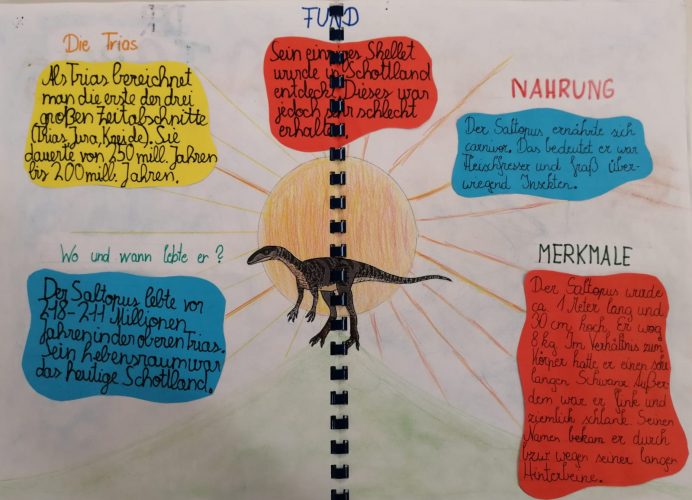 FUND
Sein einziges Skellet
wurde in Schottland
entdeckt. Dieses war
jedoch sehr schlecht
erhalten.
Die Trias
Als Trias bezeichnet
man die erste der drei
großen Zeitabschnitte
(Trias, Jura, Kreide). Sie
dauerte von 250 mill. Jahren
bis 200 mill. Jahren.
NAHRUNG
Der Saltopus ernährte sich
carnivor. Das bedeutet er war
Fleischfresser und fraß über-
wiegend Insekten.
Wo und wann lebte er?
Der Saltopus lebte vor
218-211 Millionen
Jahren in der oberen Trias.
Sein Lebensraum war
das heutige Schottland.
MERKMALE
Der Saltopus wurde
ca. 1 Meter lang und
30 cm hoch. Er wog
8 kg. Im Verhältnis zum
Körper hatte er einen sehr
langen Schwanz. Außer-
dem war er flink und
ziemlich schlank. Seinen
Namen bekam er durch
bzw. wegen seiner langen
Hinterbeine.